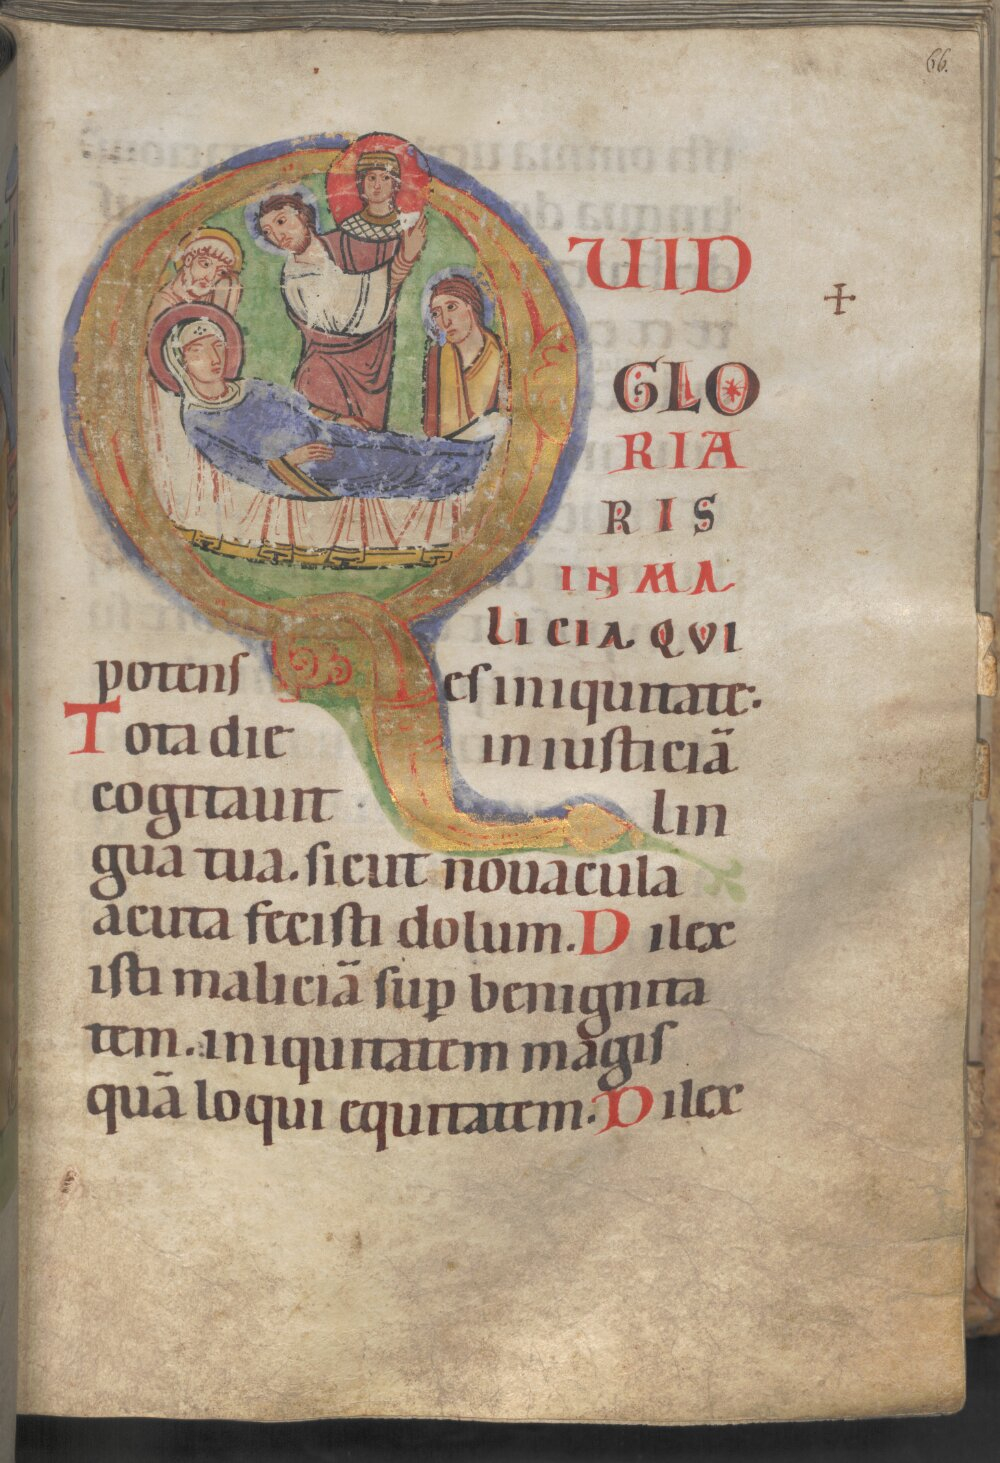 66.
QUID
GLO
RIA
RIS
IN MA
LICIA QUI
potens es iniquitate:
Tota die iniusticiā
cogitauit lin
gua tua. sicut nouacula
acuta fecisti dolum. Dilex
isti maliciā sup benignita
tem. iniquitatem magis
quā loqui equitatem. Dilex